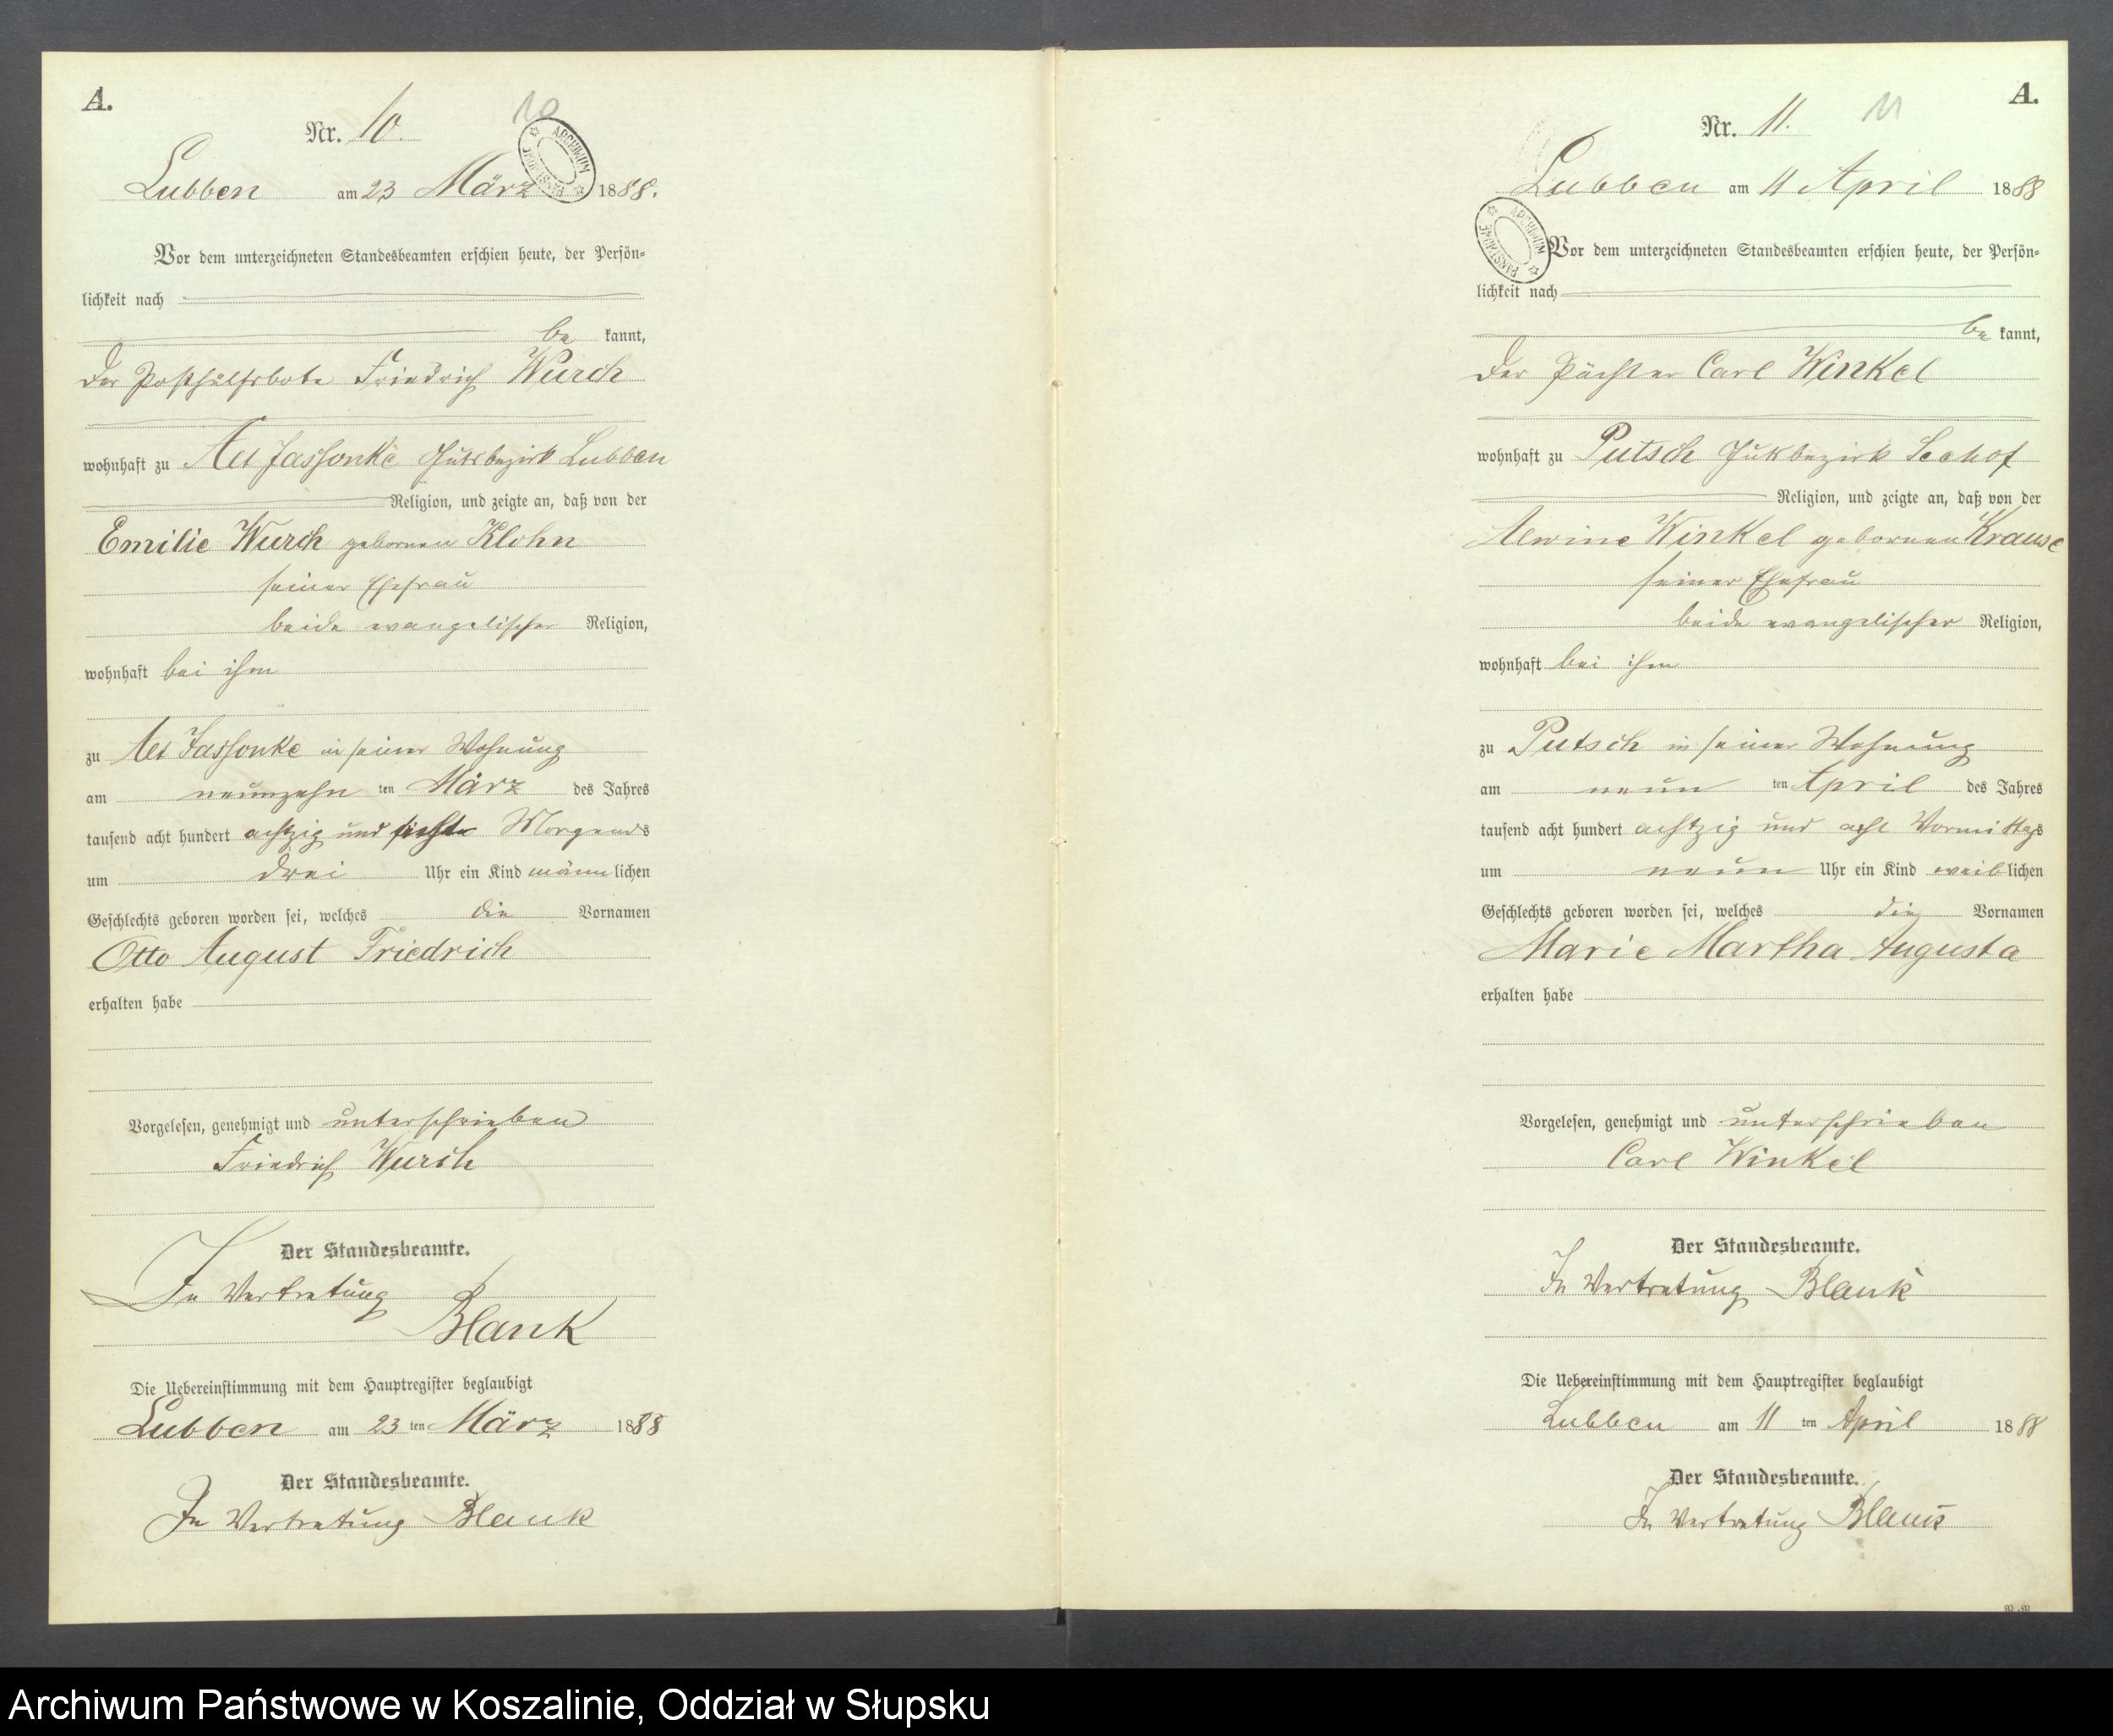 A.
Nr. 10.
10
ARCHIWUM PAŃSTWOWE
Lubben am 23 März 1888.
Vor dem unterzeichneten Standesbeamten erschien heute, der Persön-
lichkeit nach
be kannt,
der Posthülfsbote Friedrich Wurch
wohnhaft zu Alt Jassonke Gutsbezirk Lubben
Religion, und zeigte an, daß von der
Emilie Wurch gebornen Klohn
seiner Ehefrau
beide evangelischer Religion,
wohnhaft bei ihm
zu Alt Jassonke in seiner Wohnung
am neunzehn ten März des Jahres
tausend acht hundert achtzig und acht Morgends
um drei Uhr ein Kind männlichen
Geschlechts geboren worden sei, welches die Vornamen
Otto August Friedrich
erhalten habe
Vorgelesen, genehmigt und unterschrieben
Friedrich Wurch
Der Standesbeamte.
In Vertretung
Blank
Die Uebereinstimmung mit dem Hauptregister beglaubigt
Lubben am 23 ten März 1888
Der Standesbeamte.
In Vertretung Blank
A.
Nr. 11.
11
Lubben am 11 April 1888
ARCHIWUM PAŃSTWOWE
Vor dem unterzeichneten Standesbeamten erschien heute, der Persön-
lichkeit nach
be kannt,
der Pächter Carl Winkel
wohnhaft zu Putsch Gutsbezirk Seehof
Religion, und zeigte an, daß von der
Alwine Winkel gebornen Krause
seiner Ehefrau
beide evangelischer Religion,
wohnhaft bei ihm
zu Putsch in seiner Wohnung
am neun ten April des Jahres
tausend acht hundert achtzig und acht Vormittags
um neun Uhr ein Kind weiblichen
Geschlechts geboren worden sei, welches die Vornamen
Marie Martha Augusta
erhalten habe
Vorgelesen, genehmigt und unterschrieben
Carl Winkel
Der Standesbeamte.
In Vertretung Blank
Die Uebereinstimmung mit dem Hauptregister beglaubigt
Lubben am 11 ten April 1888
Der Standesbeamte.
In Vertretung Blank
Archiwum Państwowe w Koszalinie, Oddział w Słupsku